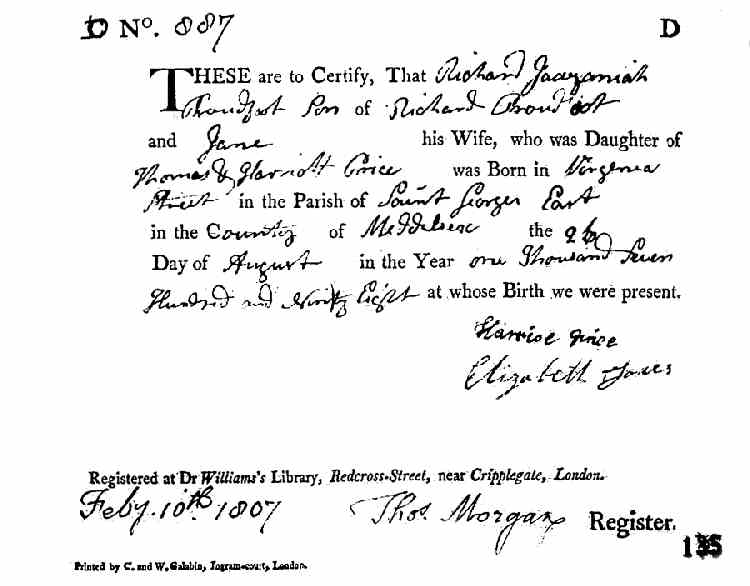 D No. 887 D
THESE are to Certify, That Richard Jaazaniah
Proudfoot Son of Richard Proudfoot
and Jane his Wife, who was Daughter of
Thomas & Harriott Price was Born in Virginea
Street in the Parish of Saint Georges East
in the County of Meddelsex the
Day of August in the Year one Thousand Seven
Hundred and Ninty Eight at whose Birth we were present.
Harriot Price
Elizabeth
Registered at Dr Williams's Library, Redcross-Street, near Cripplegate, London.
Feby. 10th 1807 Thos. Morgan Register.
Printed by C. and W. Galabin, Ingram-court, London.